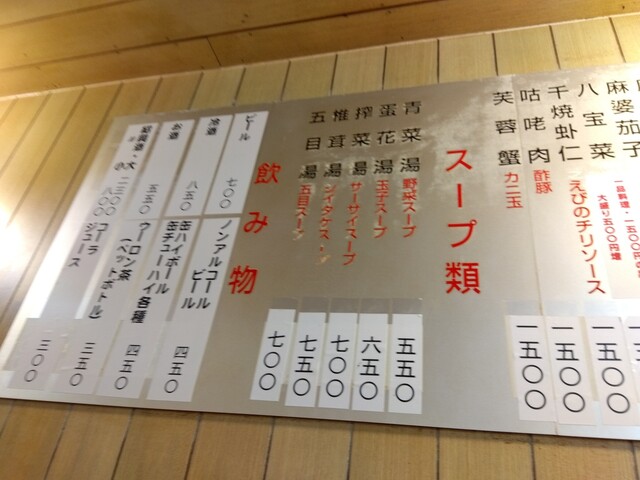 麻婆茄子
一品料理・一五〇〇円の
大盛り五〇〇円増
八宝菜
一五〇〇
干焼蚧仁
えびのチリソース
一五〇〇
咕咾肉
酢豚
一五〇〇
芙蓉蟹
カニ玉
一五〇〇
スープ類
青菜湯
野菜スープ
五五〇
蛋花湯
玉子スープ
六五〇
搾菜湯
サーサイスープ
七〇〇
椎茸湯
シイタケスープ
七五〇
五目湯
五目スープ
七〇〇
飲み物
ビール
七〇〇
冷酒
八五〇
お酒
五五〇
紹興酒・大 二三〇〇
小 八〇〇
ノンアルコール
ビール
缶ハイボール
缶チューハイ各種
四五〇
ウーロン茶
(ペットボトル)
四五〇
コーラ
三五〇
ジュース
三〇〇